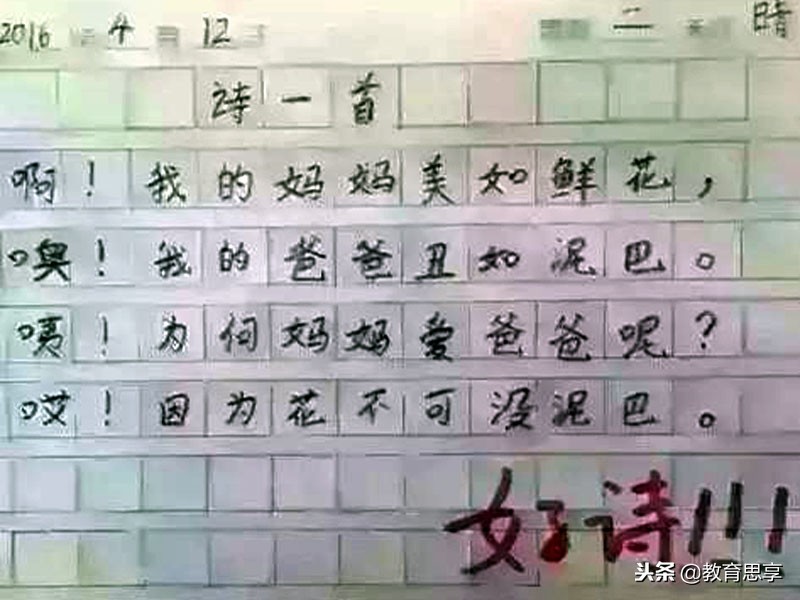 2016 4 12 二 晴
诗一首
啊！我的妈妈美如鲜花，
噢！我的爸爸丑如泥巴。
咦！为何妈妈爱爸爸呢？
哎！因为花不可没泥巴。
好诗!!!
头条 @教育思享